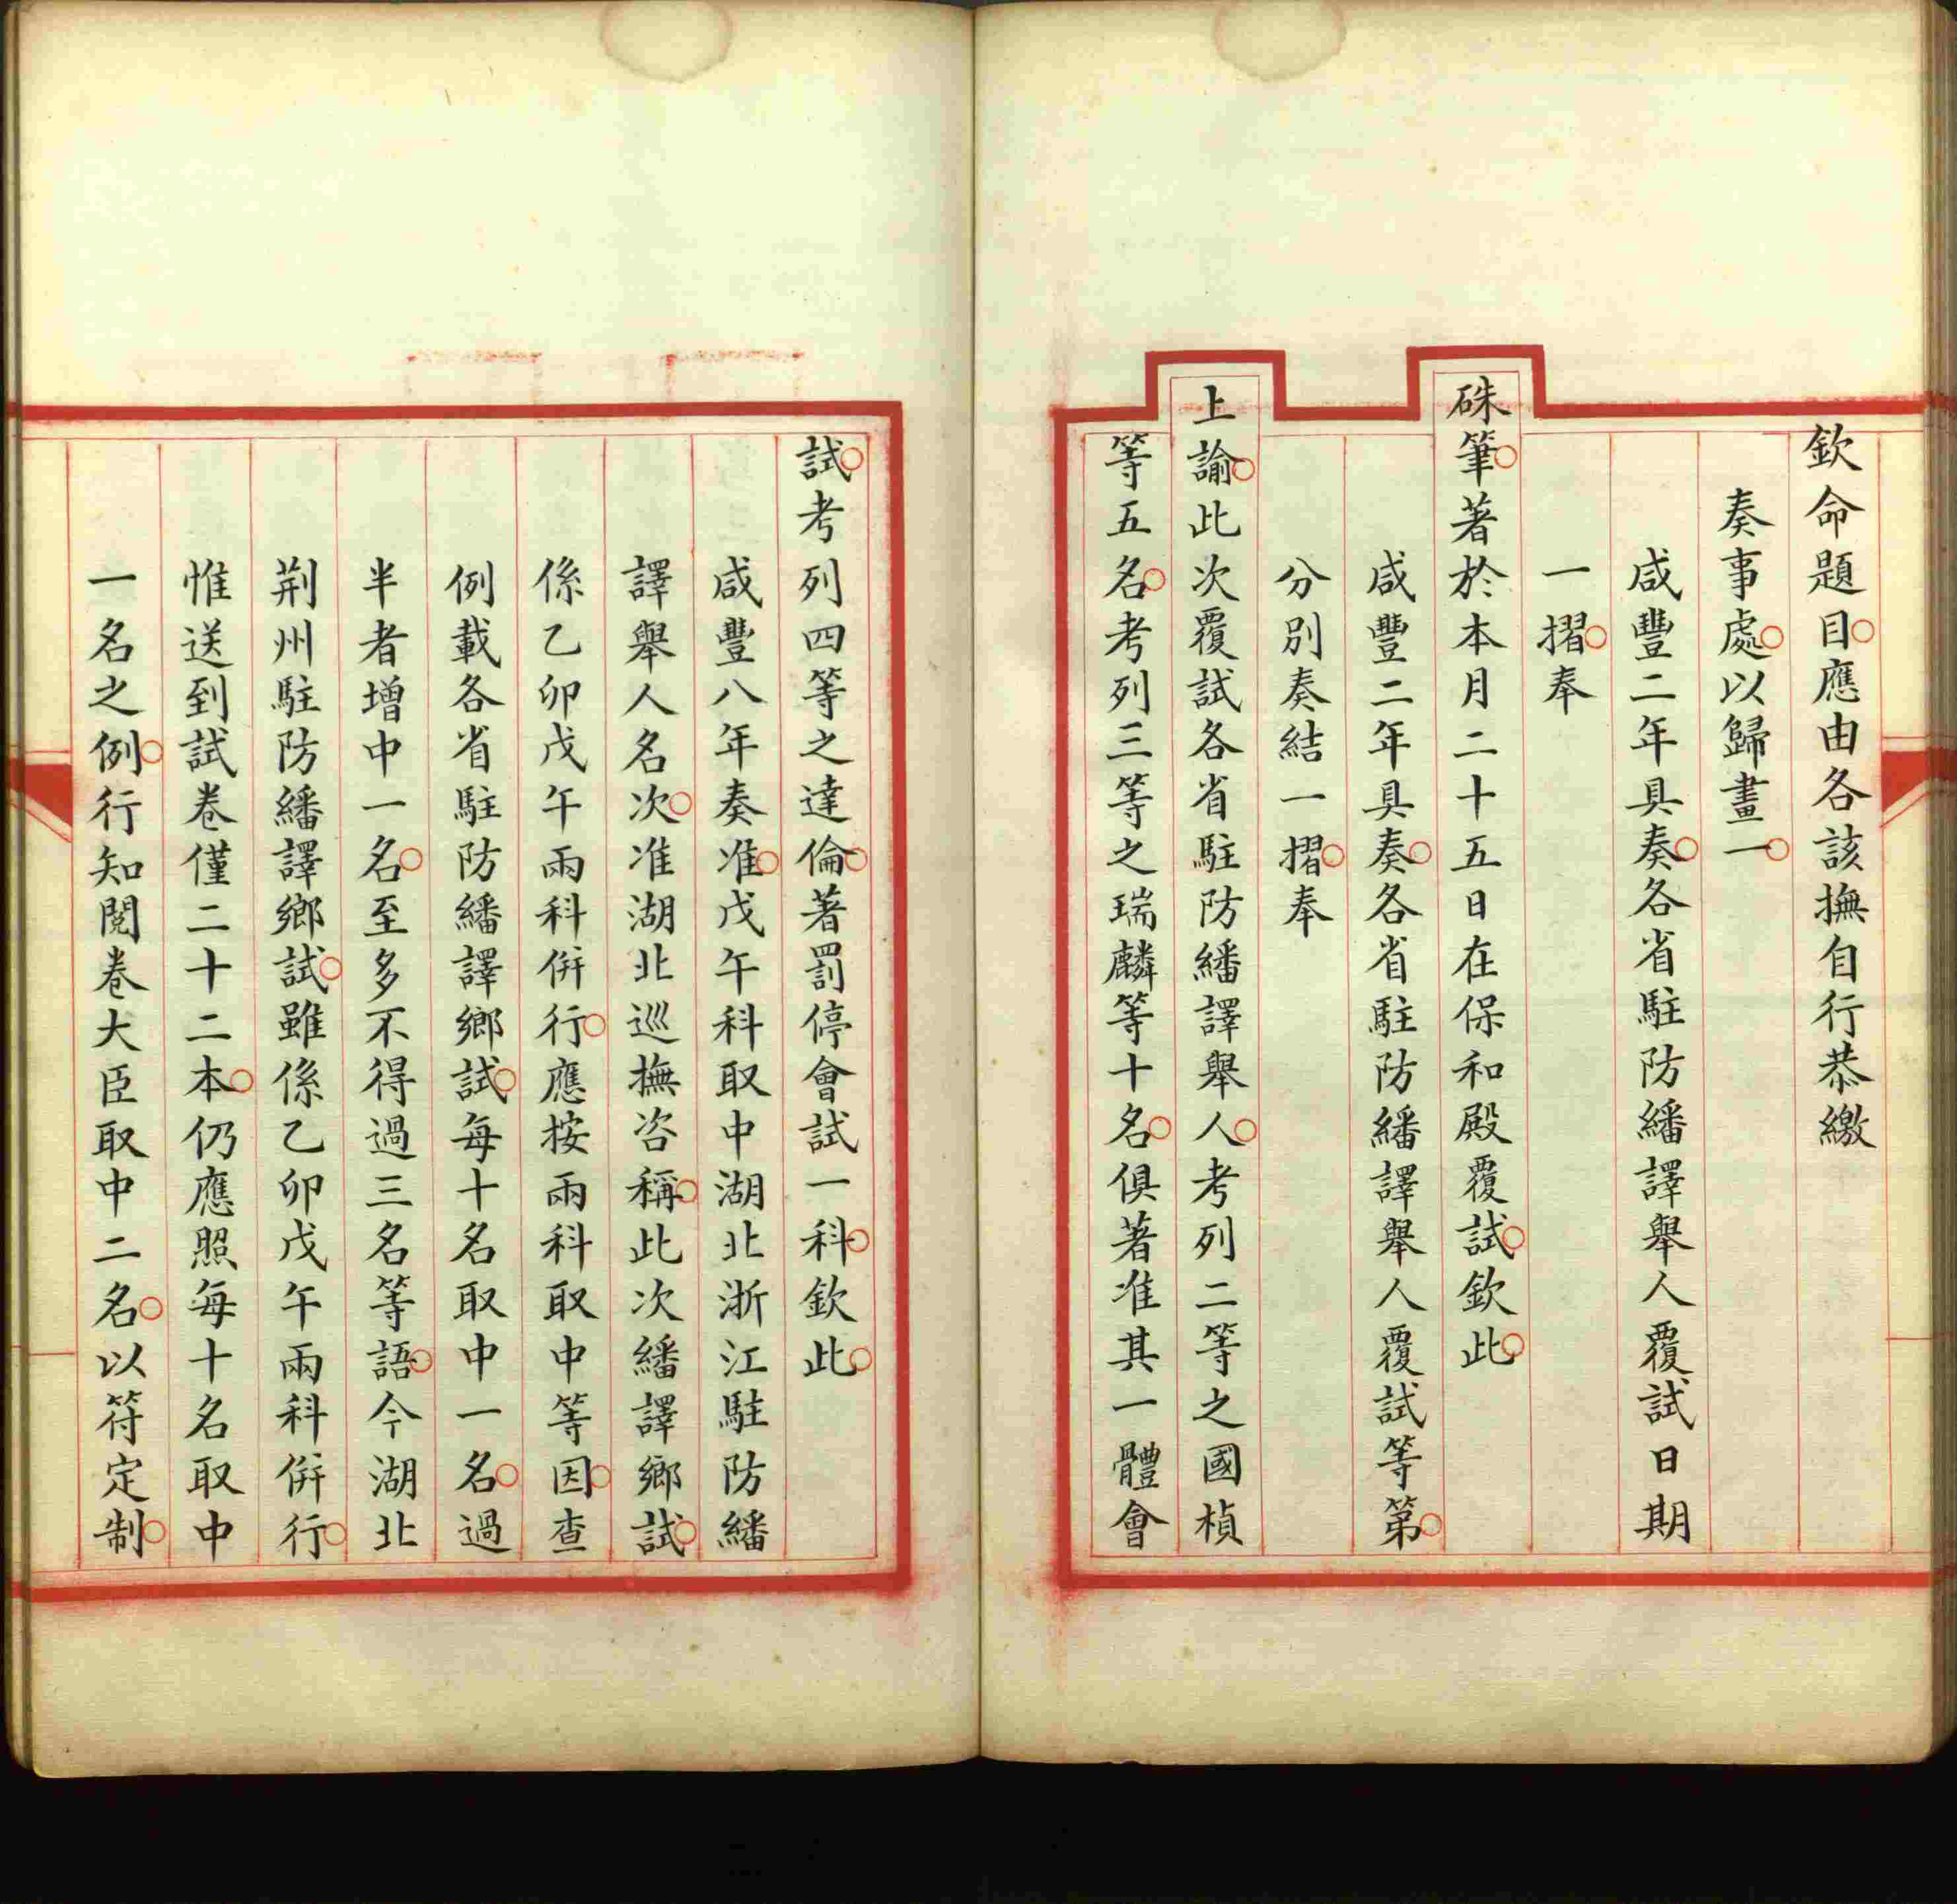 欽命題目○應由各該撫自行恭繳
奏事處○以歸畫一○
咸豐二年具奏○各省駐防繙譯舉人覆試日期
一摺○奉
硃筆○著於本月二十五日在保和殿覆試○欽此○
咸豐二年具奏○各省駐防繙譯舉人覆試等第○
分別奏結一摺○奉
上諭○此次覆試各省駐防繙譯舉人○考列二等之國楨
等五名○考列三等之瑞麟等十名○俱著准其一體會
試○考列四等之達倫○著罰停會試一科○欽此○
咸豐八年奏准○戊午科取中湖北浙江駐防繙
譯舉人名次○准湖北巡撫咨稱○此次繙譯鄉試○
係乙卯戊午兩科併行○應按兩科取中等因○查
例載各省駐防繙譯鄉試○每十名取中一名○過
半者增中一名○至多不得過三名等語○今湖北
荊州駐防繙譯鄉試○雖係乙卯戊午兩科併行○
惟送到試卷僅二十二本○仍應照每十名取中
一名之例○行知閱卷大臣取中二名○以符定制○